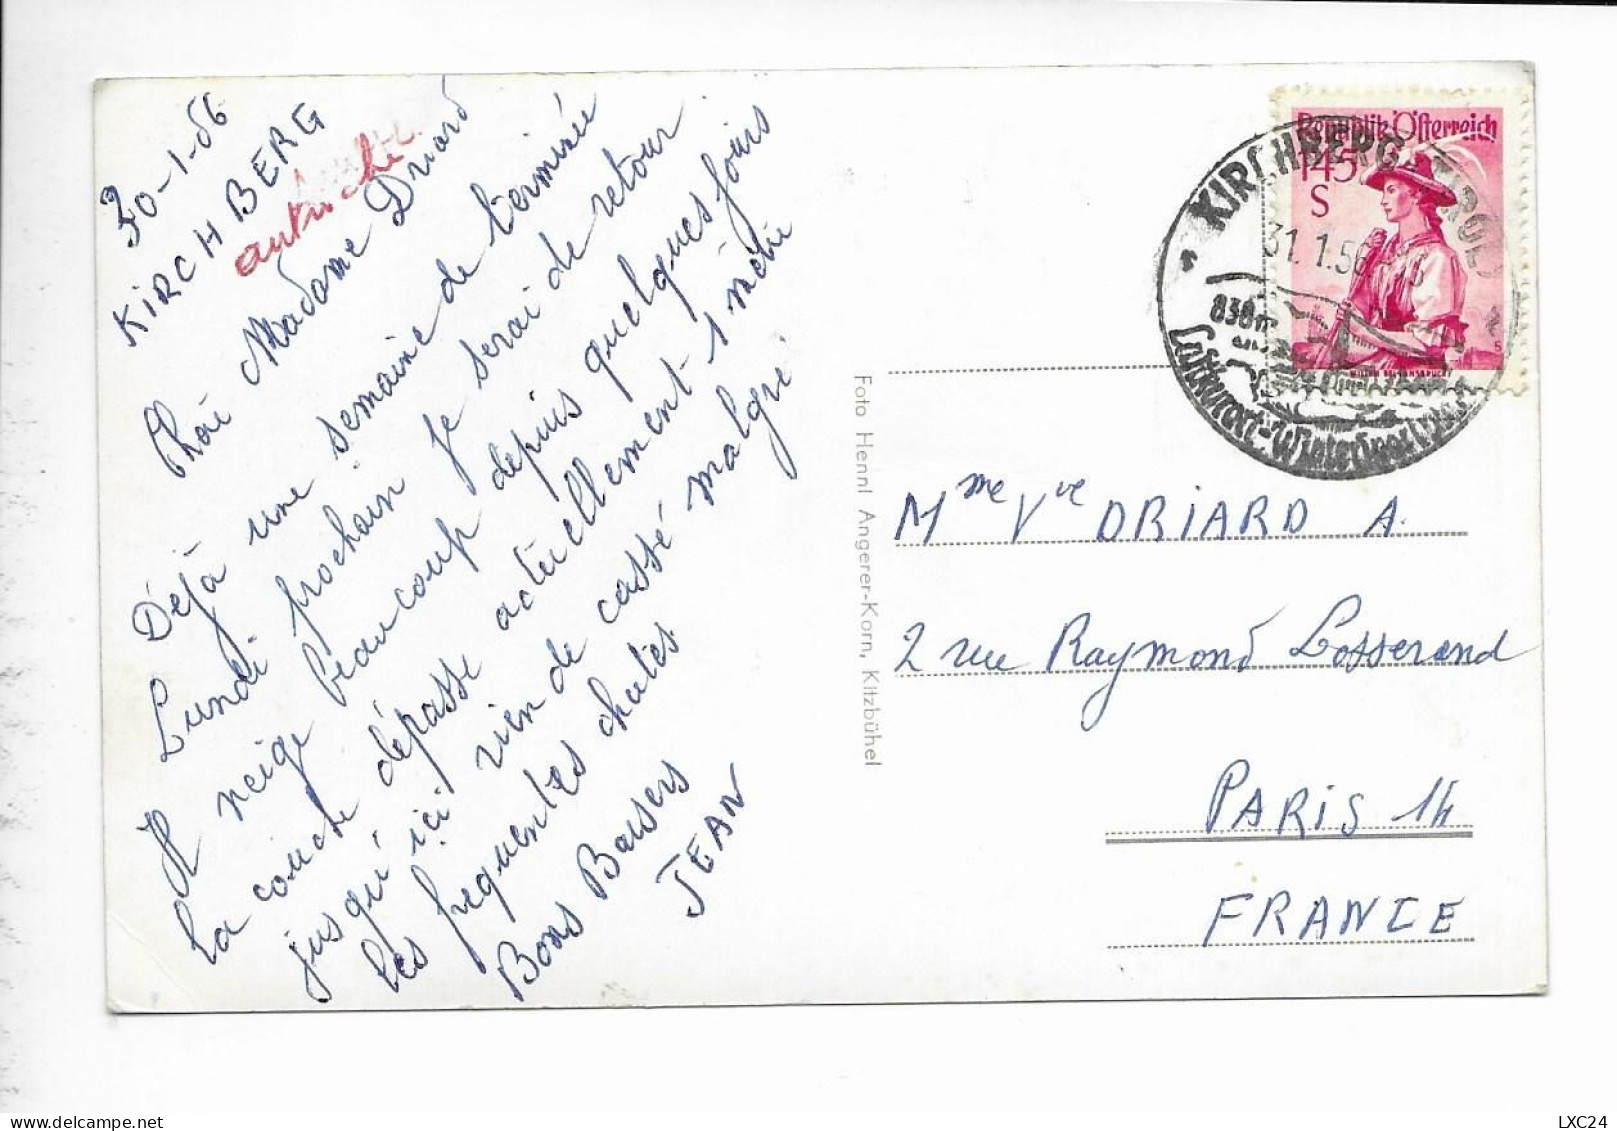 30-1-56
KIRCHBERG
autriche
Chère Madame Driard
Déjà une semaine de terminée
Lundi prochain je serai de retour
Il neige beaucoup depuis quelques jours
la couche dépasse actuellement 1 mètre
jusqu'ici rien de cassé malgré
les frequentes chutes
Bons Baisers
JEAN
Foto Hennl Angerer-Korn, Kitzbühel
Republik Österreich
1.45
S
KIRCHBERG TIROL
31.1.56
838m
Luftkurort-Wintersportplatz
Mme Vve DRIARD A.
2 rue Raymond Losserand
PARIS 14
FRANCE
LXC24